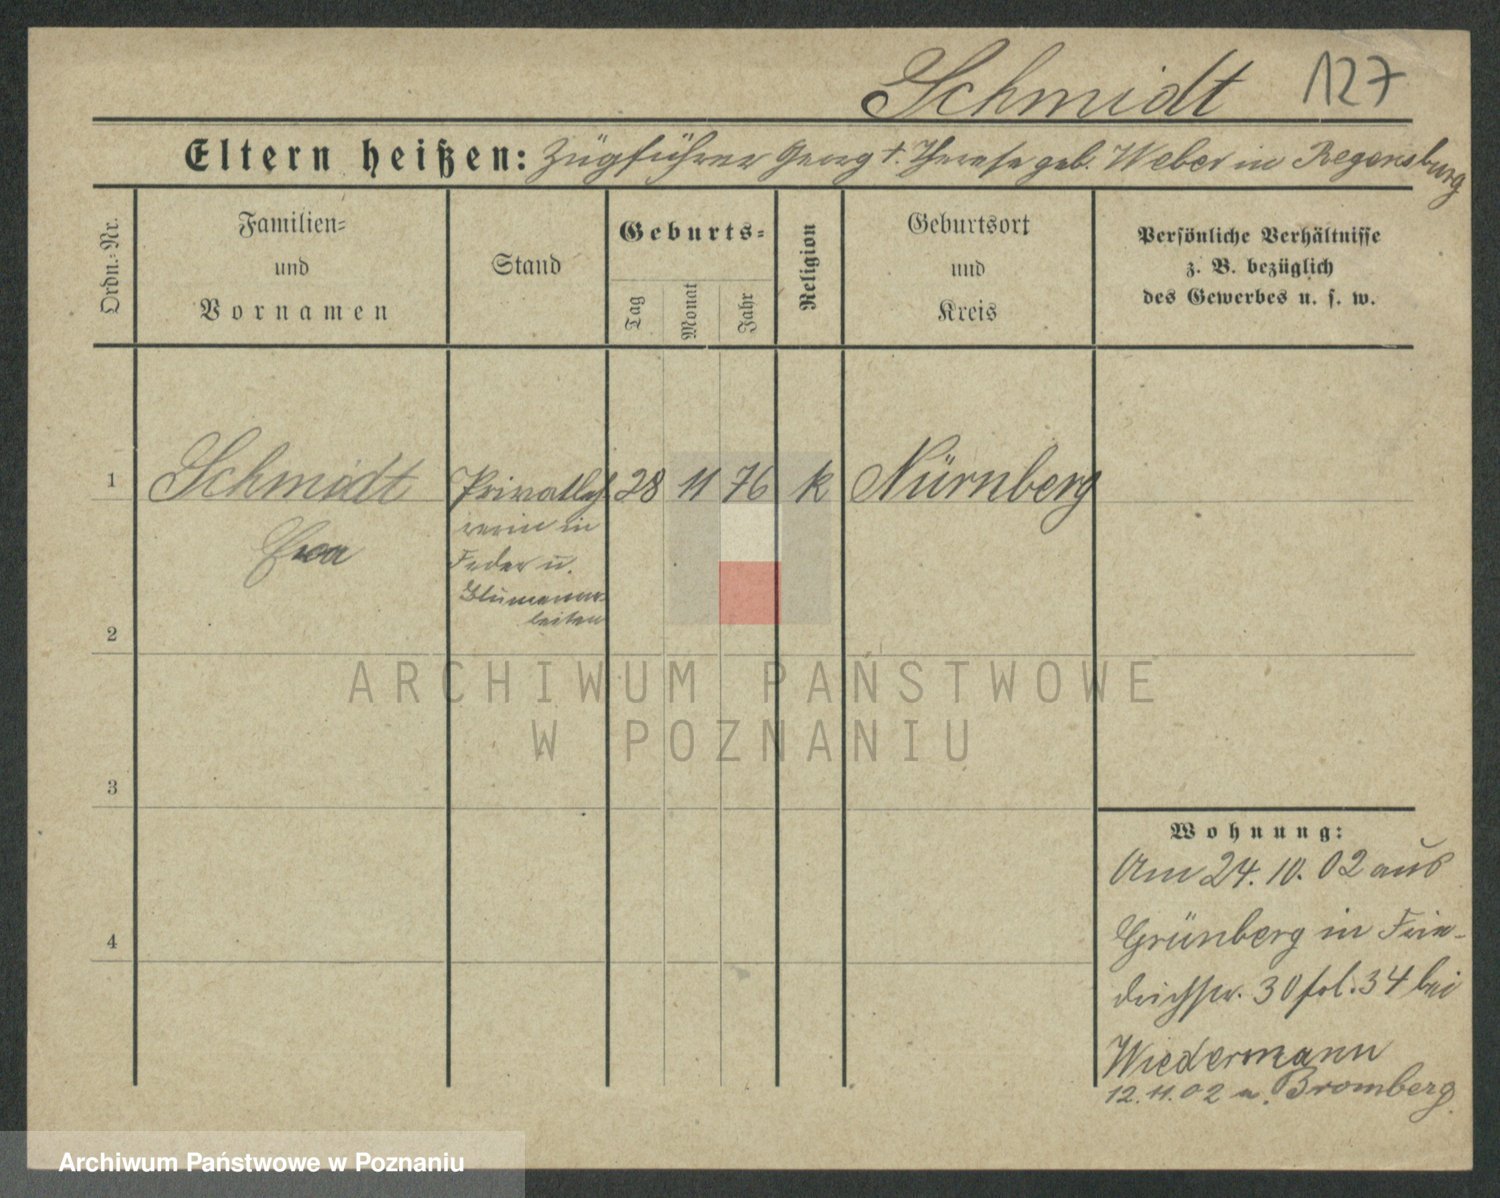 Schmidt 127
Eltern heißen: Zugführer Georg †. Therese geb. Weber in Regensburg
Ordn.-Nr.
Familien-
und
Vornamen
Stand
Geburts-
Tag
Monat
Jahr
Religion
Geburtsort
und
Kreis
Persönliche Verhältnisse
z. B. bezüglich
des Gewerbes u. s. w.
1 Schmidt Privatleh 28 11 76 k Nürnberg
Eva
rerin in
Feder u.
Blumenar-
beiten
2
ARCHIWUM PAŃSTWOWE
W POZNANIU
3
4
Wohnung:
Am 24.10.02 aus
Grünberg in Frie-
drichstr. 30 fol. 34 bei
Wiedermann
12.11.02 n. Bromberg.
Archiwum Państwowe w Poznaniu